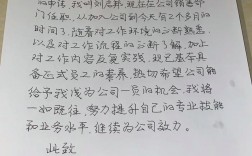 的申请,我叫刘名邦,现任公司销售部
门经理,从加入公司到今天有2个多月的
时间了,随着对工作环境的不断熟悉,
以及对工作流程的不断了解,加上
对工作内容反复实践,现已基本具
备正式员工的素养,热切希望公司能
给予我成为公司一员的机会,我将
一如既往,努力提升自己的专业技能
和业务水平,继续为公司效力。
此致